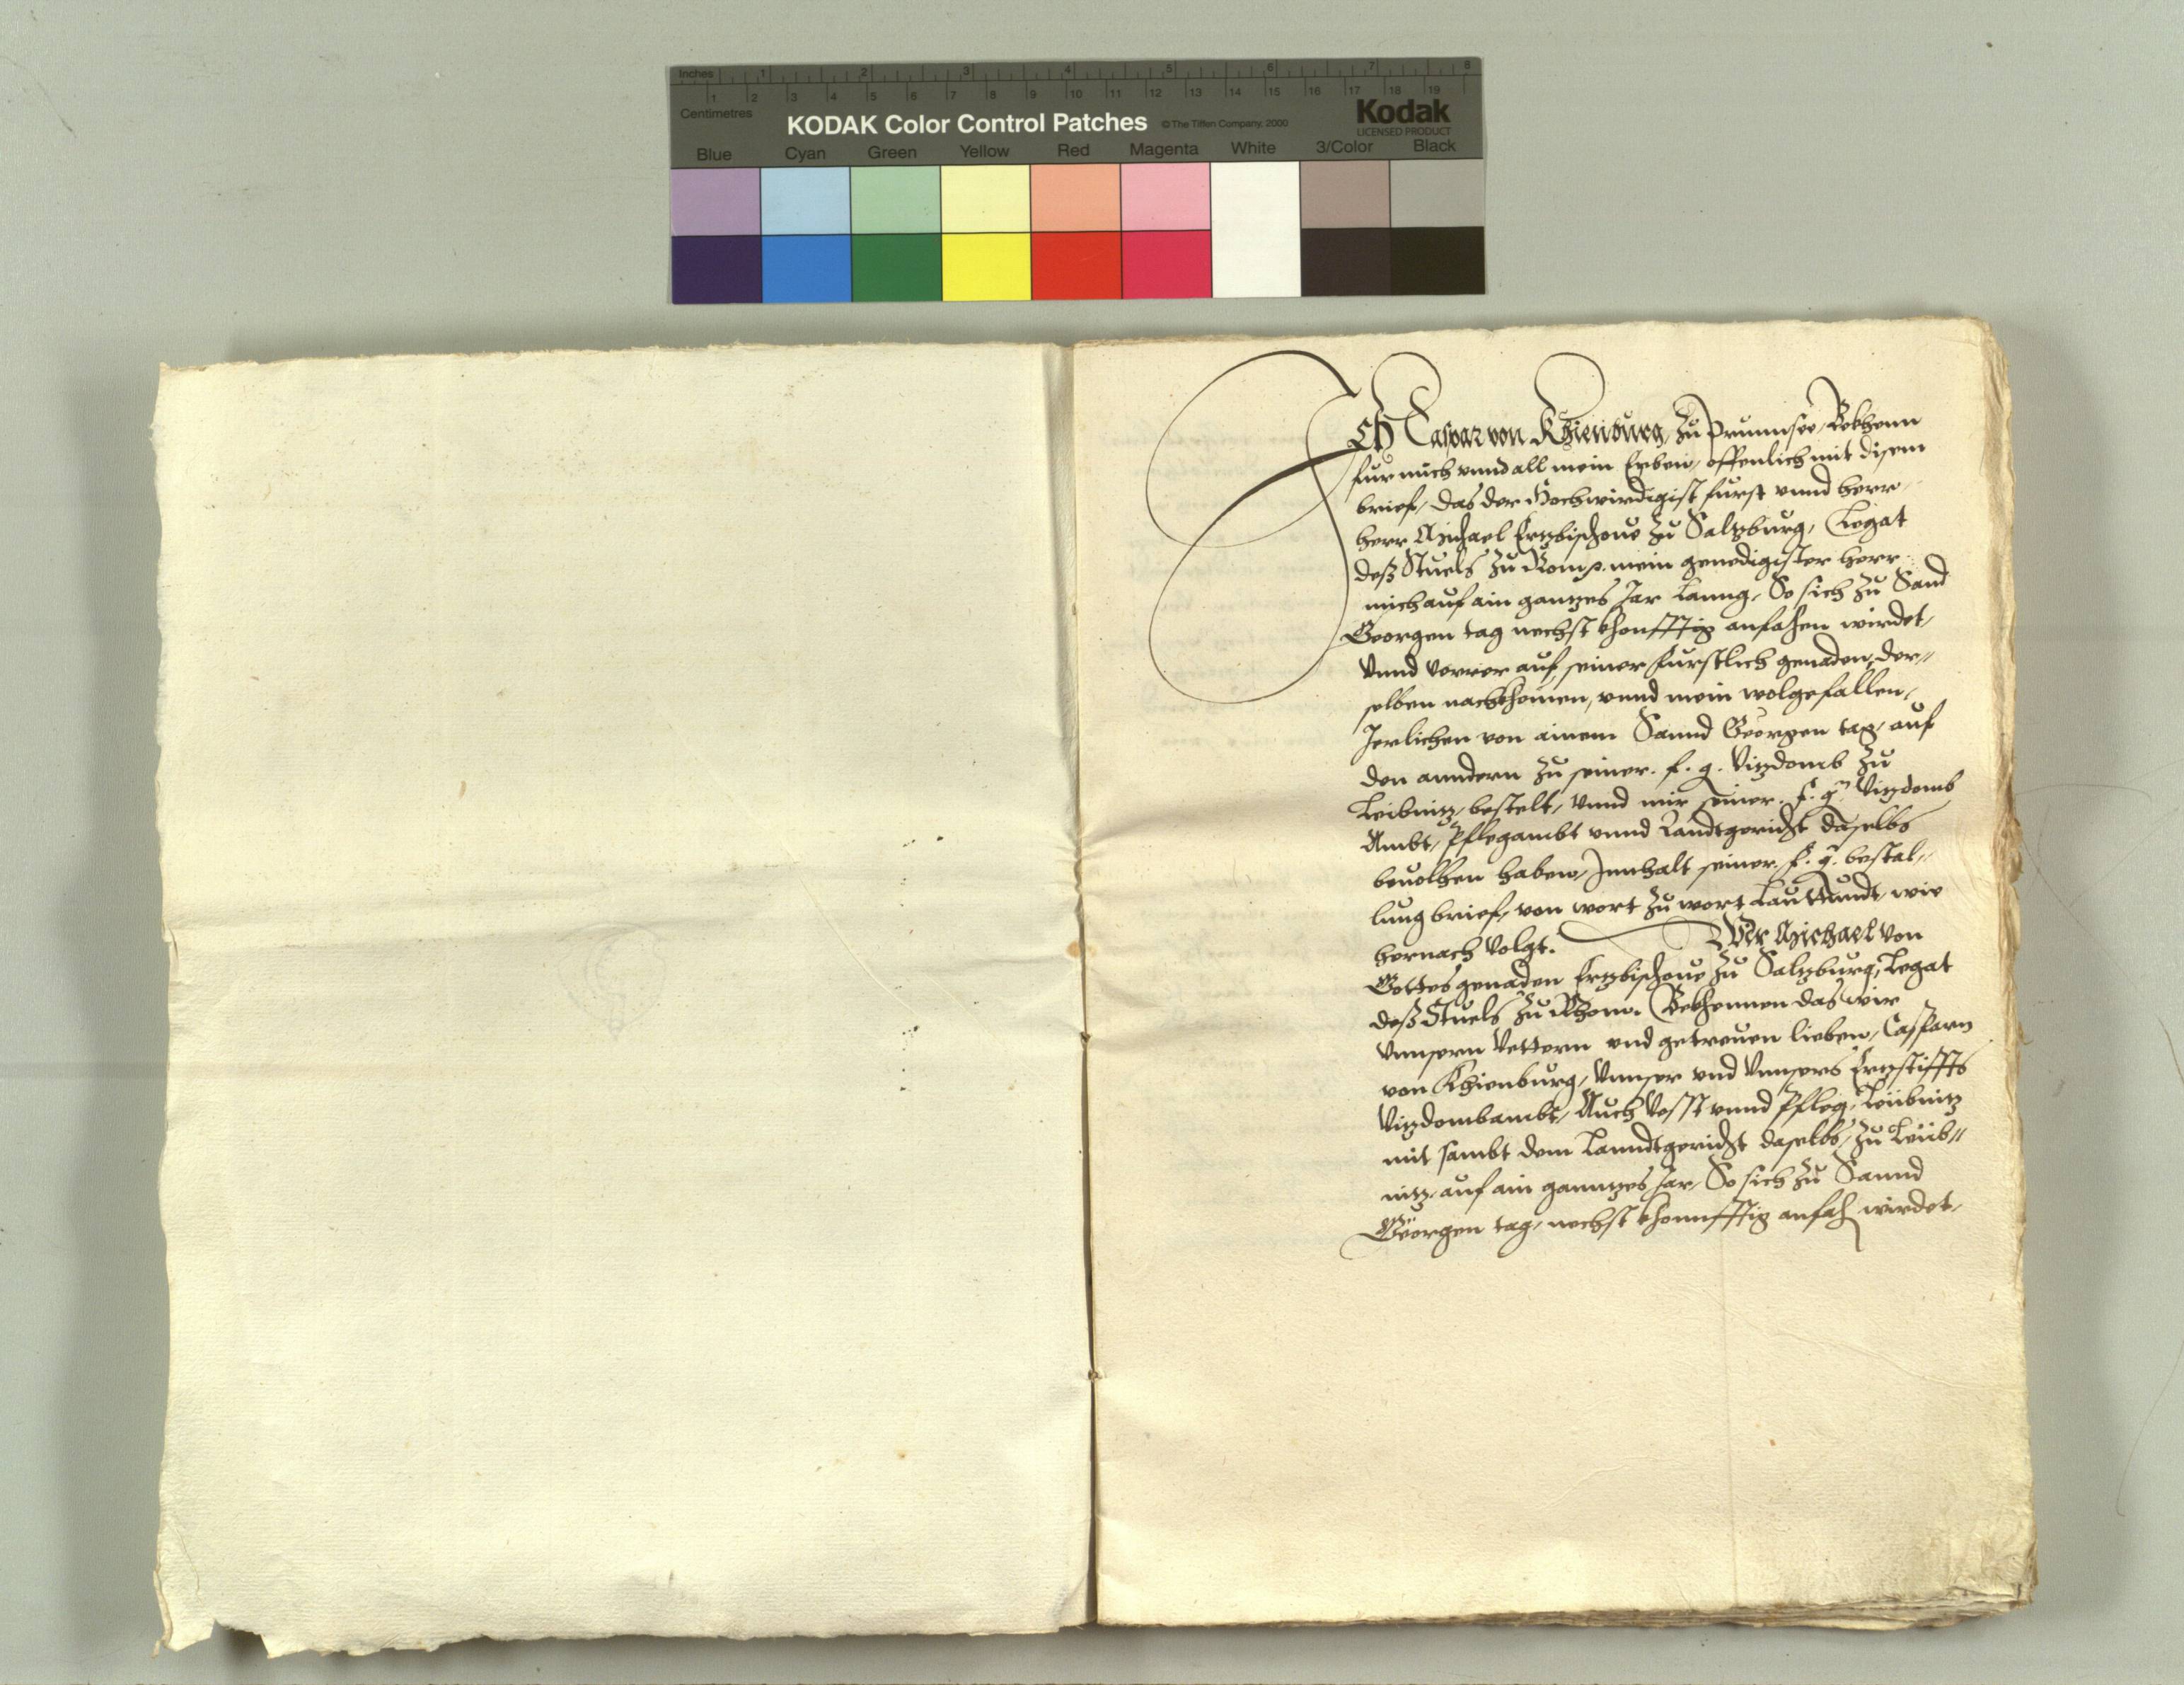 Inches 1 2 3 4 5 6 7 8
1 2 3 4 5 6 7 8 9 10 11 12 13 14 15 16 17 18 19
Centimetres
KODAK Color Control Patches ©The Tiffen Company, 2000 Kodak
LICENSED PRODUCT
Blue Cyan Green Yellow Red Magenta White 3/Color Black
Ich Caspar von Khienburg, zu Prunnsee, Bekhenn
fur mich vnnd all mein Erben, offenlich mit disem
brief, das der Hochwirdigist furst vnnd herr
herr Michael Ertzbischoue zu Saltzburg, Legat
deß Stuels zu Rom p. mein genedigister herr
mich auf ain gantzes Jar lanng, So sich zu Sand
Georgen tag nechst khonfftig anfahen wirdet,
Vnnd verrer auf seiner furstlich genaden, der„
selben nachkhomen, vnnd mein wolgefallen,
Jerlichen von ainem Sannd Georgen tag, auf
den anndern zu seiner. f. g. Vitzdomb zu
Leibnitz, bestelt, Vnnd mir seiner. f. g. Vitzdomb
Ambt, Pflegambt vnnd Landtgericht daselbs
beuolhen haben, Innhalt seiner. f. g. bestal„
lung brief, von wort zu wort lauttundt, wie
hernach volgt. Wir Michael von
Gottes genaden Ertzbischoue zu Saltzburg, Legat
deß Stuels zu Rhom. Bekhennen das wir
Vnnsern Vettern vnd getreuen lieben, Casparn
von Khienburg, Vnnser vnd Vnnsers Ertzstiffts
Vitzdombambt, Auch Vesst vnnd Pfleg, Leibnitz
mit sambt dem Lanndtgericht daselbs, zu Leib„
nitz, auf ain ganntzes Jar, So sich zu Sannd
Georgen tag, nechst khonnfftig anfah wirdet,